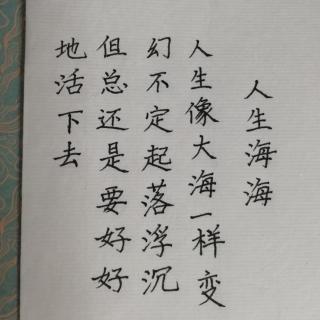 人生海海
人生像大海一样变
幻不定起落浮沉
但总还是要好好
地活下去